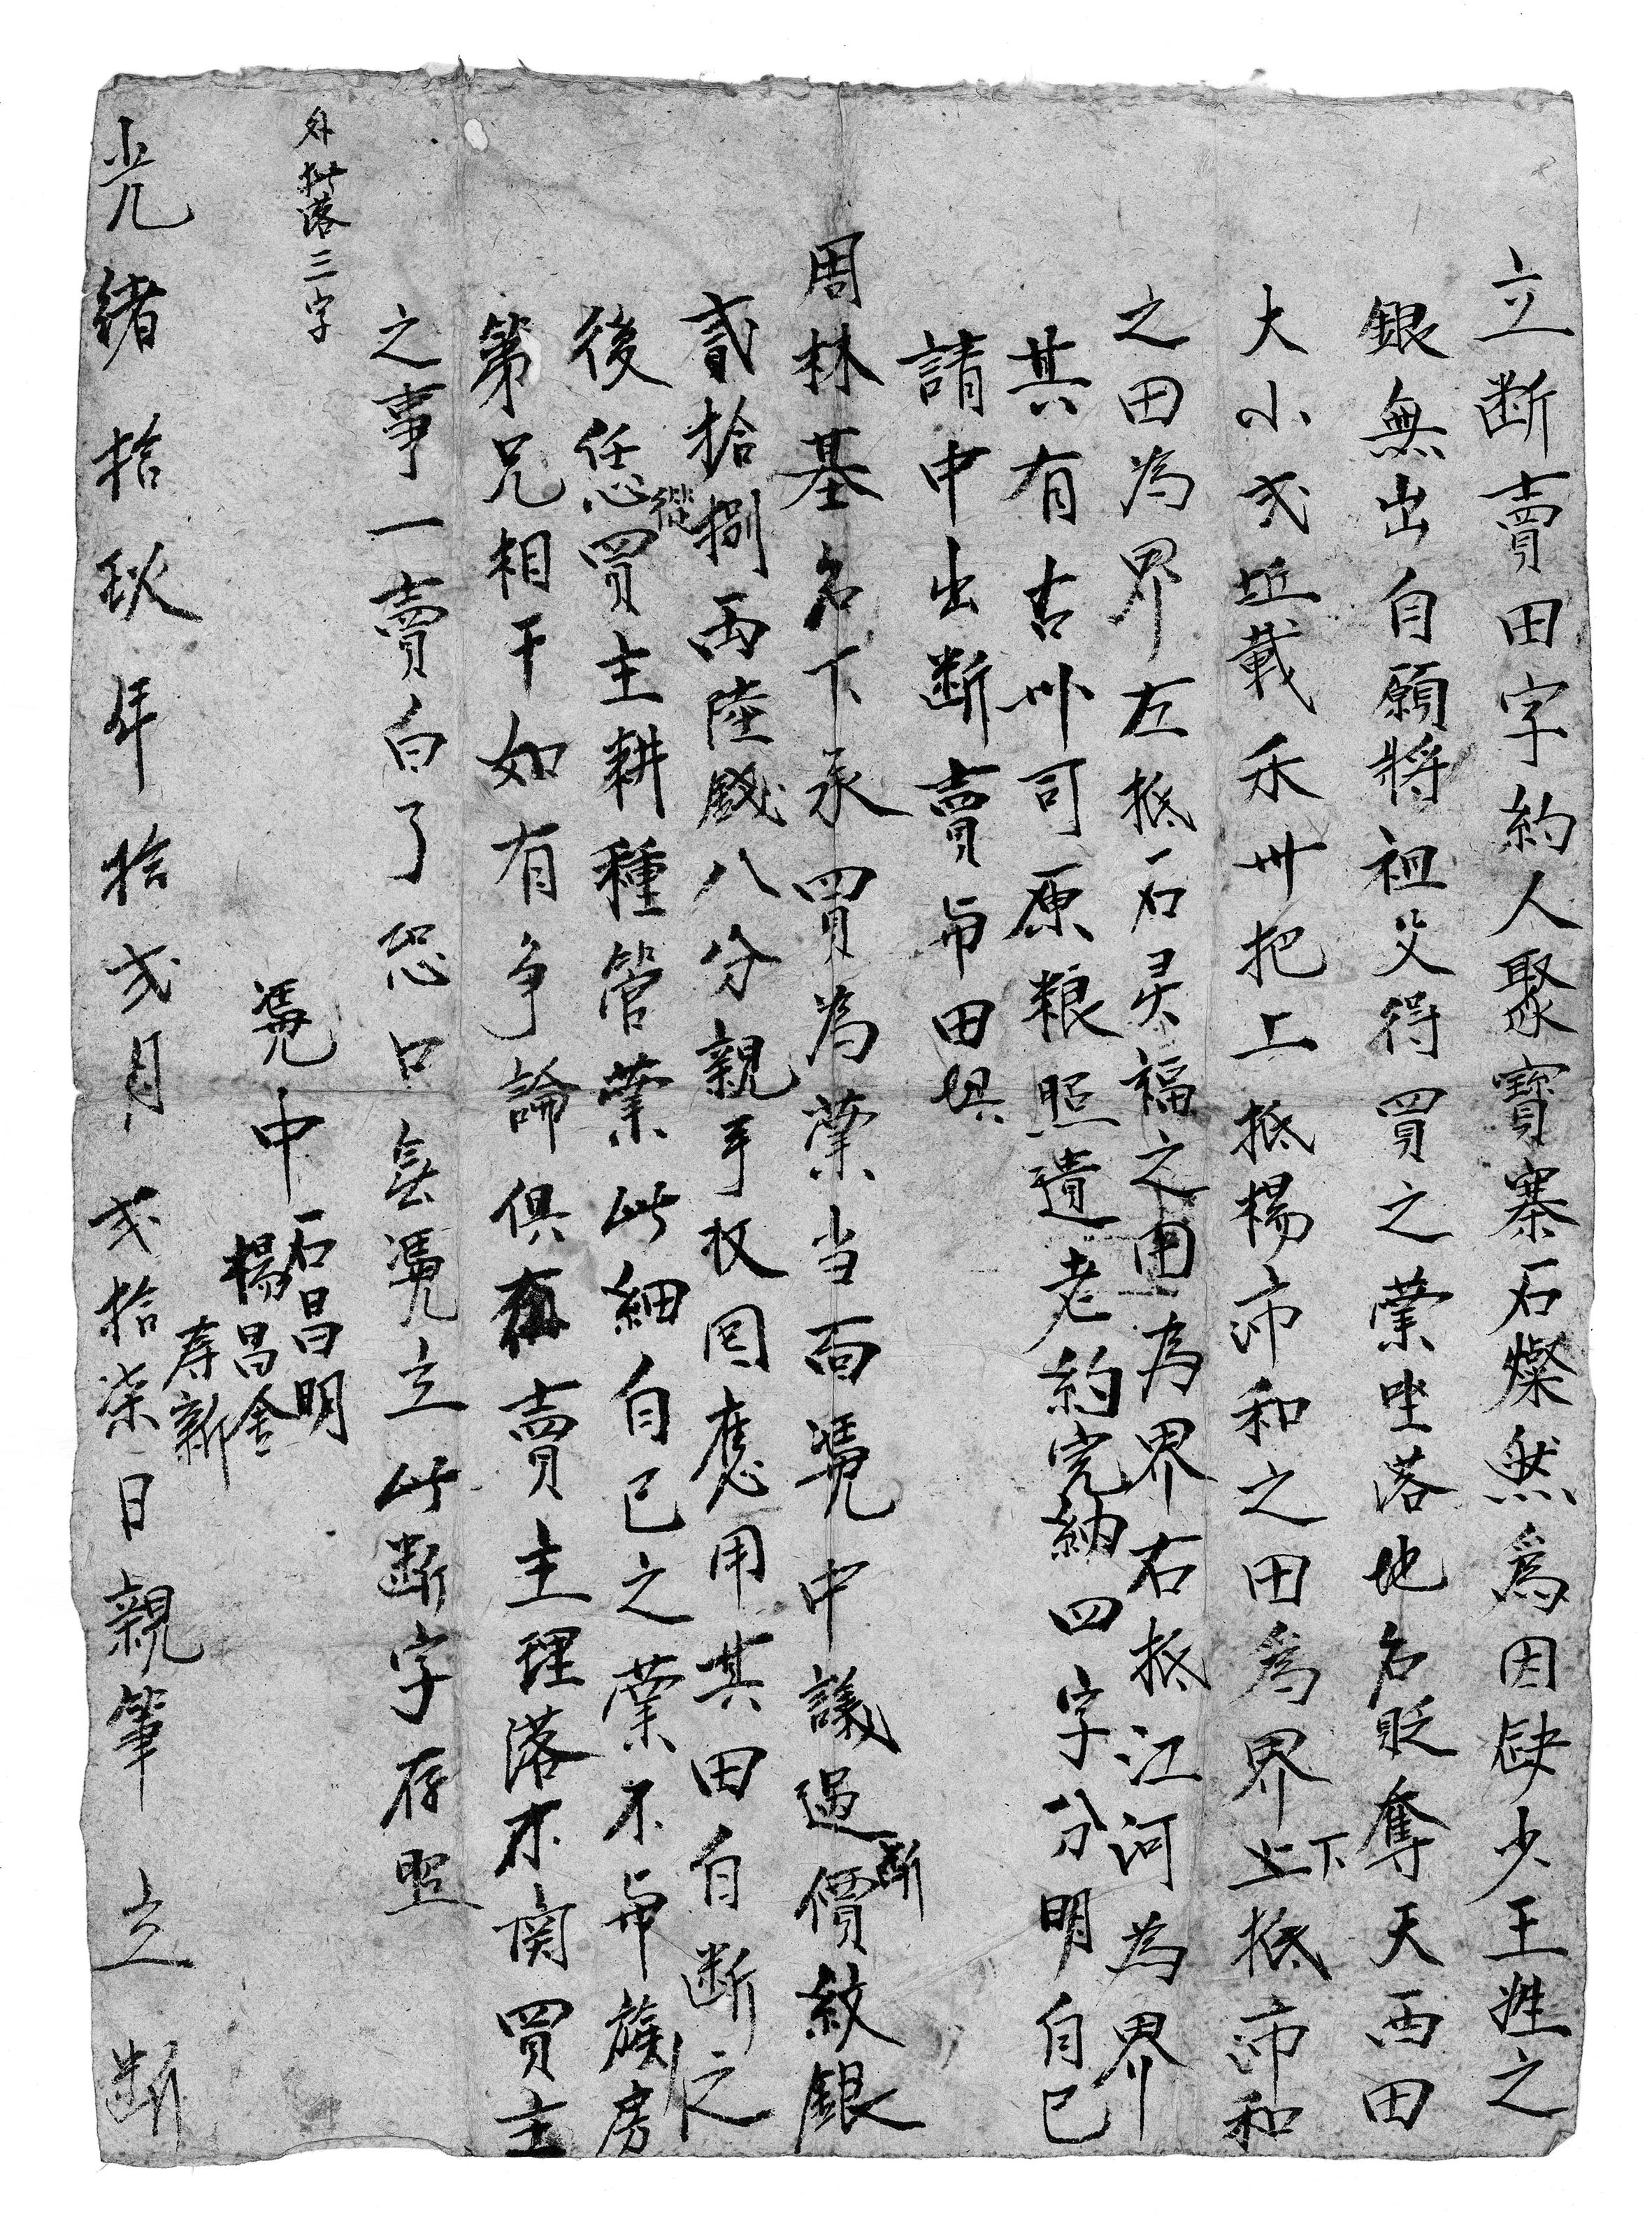 立断賣田字約人聚寳寨石燦然爲因缺少王姓之
銀無出自願將祖父得買之業坐落地名貶奪天西田
大小弐坵載禾卅把上抵楊沛和之田為界上下抵沛和
之田為界左抵石灵福之田為界右抵江河為界
其有古州司原粮照遺老約完納四字分明自己
請中出断賣與田堤
周林基名下承買為業当面凴中議過断價紋銀
貳拾捌両陸錢八分親手收囬應用其田自断之
後任恁從買主耕種管業此細自己之業不與族房
第兄相干如有争論俱在賣主理落不関買主
之事一賣白了恐口無凴立此断字存照
外批落三字
凴中 石昌明
楊昌金
寿新
光緒拾玖年拾弐月弐拾柒日親筆 立断